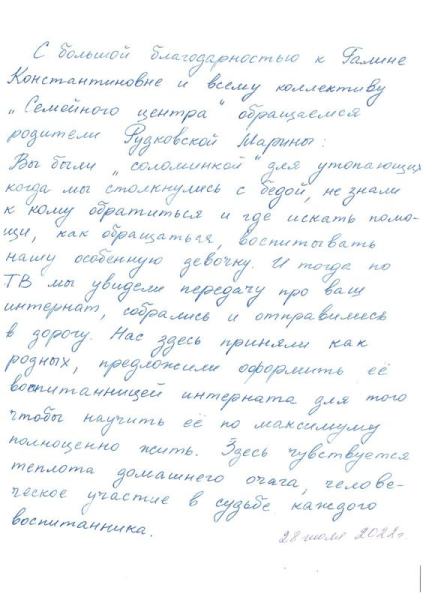 С большой благодарностью к Галине
Константиновне и всему коллективу
„Семейного центра" обращаемся
родители Рудковской Марины:
Вы были „соломинкой" для утопающих
когда мы столкнулись с бедой, не знали
к кому обратиться и где искать помо-
щи, как обращаться, воспитывать
нашу особенную девочку. И тогда по
ТВ мы увидели передачу про ваш
интернат, собрались и отправились
в дорогу. Нас здесь приняли как
родных, предложили оформить её
воспитанницей интерната для того
чтобы научить её по максимуму
полноценно жить. Здесь чувствуется
теплота домашнего очага, челове-
ческое участие в судьбе каждого
воспитанника.
28 июля 2022 г.